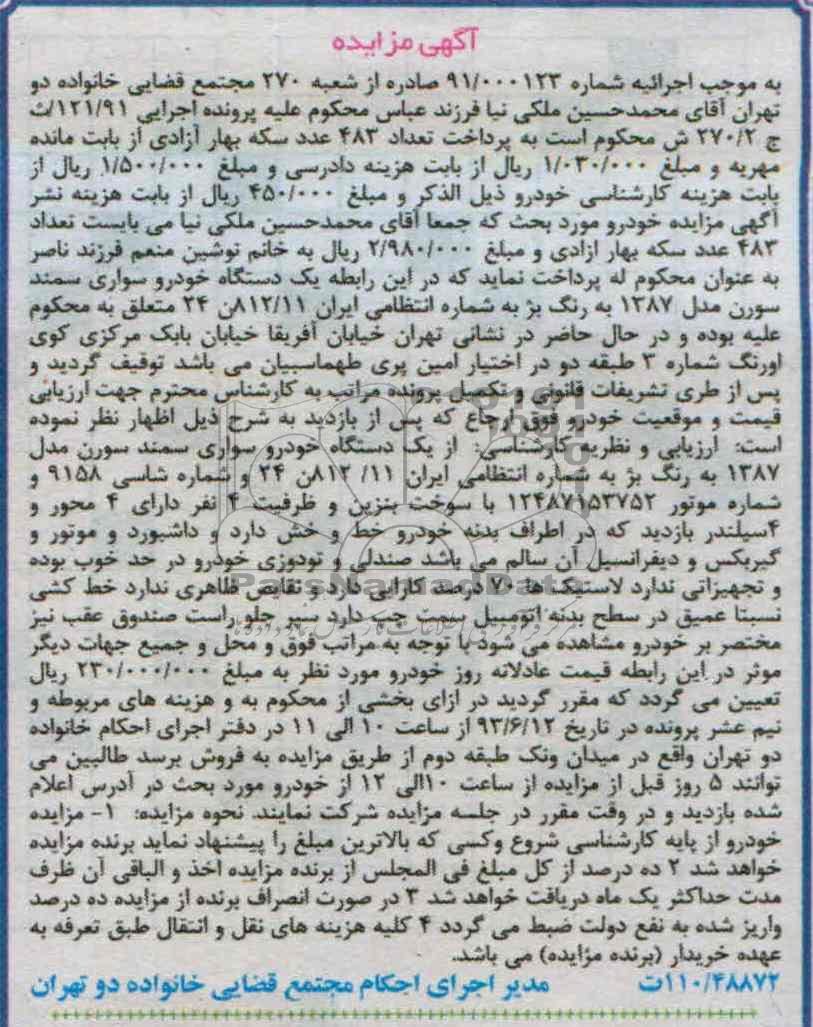 آگهی مزایده
به موجب اجرائیه شماره ۹۱/۰۰۰۱۲۳ صادره از شعبه ۲۷۰ مجتمع قضایی خانواده دو
تهران آقای محمدحسین ملکی نیا فرزند عباس محکوم علیه پرونده اجرایی ۱۲۱/۹۱/ث
ج ۲۷۰/۲ ش محکوم است به پرداخت تعداد ۴۸۳ عدد سکه بهار آزادی از بابت مانده
مهریه و مبلغ ۱/۰۳۰/۰۰۰ ریال از بابت هزینه دادرسی و مبلغ ۱/۵۰۰/۰۰۰ ریال از
بابت هزینه کارشناسی خودرو ذیل الذکر و مبلغ ۴۵۰/۰۰۰ ریال از بابت هزینه نشر
آگهی مزایده خودرو مورد بحث که جمعا آقای محمدحسین ملکی نیا می بایست تعداد
۴۸۳ عدد سکه بهار ازادی و مبلغ ۲/۹۸۰/۰۰۰ ریال به خانم نوشین منعم فرزند ناصر
به عنوان محکوم له پرداخت نماید که در این رابطه یک دستگاه خودرو سواری سمند
سورن مدل ۱۳۸۷ به رنگ بژ به شماره انتظامی ایران ۸۱۲/۱۱ن ۲۴ متعلق به محکوم
علیه بوده و در حال حاضر در نشانی تهران خیابان آفریقا خیابان بابک مرکزی کوی
اورنگ شماره ۳ طبقه دو در اختیار امین پری طهماسبیان می باشد توقیف گردید و
پس از طری تشریفات قانونی و تکمیل پرونده مراتب به کارشناس محترم جهت ارزیابی
قیمت و موقعیت خودرو فوق ارجاع که پس از بازدید به شرح ذیل اظهار نظر نموده
است: ارزیابی و نظریه کارشناسی: از یک دستگاه خودرو سواری سمند سورن مدل
۱۳۸۷ به رنگ بژ به شماره انتظامی ایران ۱۱/ ۸۱۲ن ۲۴ و شماره شاسی ۹۱۵۸ و
شماره موتور ۱۲۴۸۷۱۵۳۷۵۲ با سوخت بنزین و ظرفیت ۴ نفر دارای ۴ محور و
۴سیلندر بازدید که در اطراف بدنه خودرو خط و خش دارد و داشبورد و موتور و
گیربکس و دیفرانسیل آن سالم می باشد صندلی و تودوزی خودرو در حد خوب بوده
و تجهیزاتی ندارد لاستیک‌ها ۷۰ درصد کارایی دارد و نقایص ظاهری ندارد خط کشی
نسبتا عمیق در سطح بدنه اتومبیل سمت چپ دارد سپر جلو راست صندوق عقب نیز
مختصر بر خودرو مشاهده می شود با توجه به مراتب فوق و محل و جمیع جهات دیگر
موثر در این رابطه قیمت عادلانه روز خودرو مورد نظر به مبلغ ۲۳۰/۰۰۰/۰۰۰ ریال
تعیین می گردد که مقرر گردید در ازای بخشی از محکوم به و هزینه های مربوطه و
نیم عشر پرونده در تاریخ ۹۳/۶/۱۲ از ساعت ۱۰ الی ۱۱ در دفتر اجرای احکام خانواده
دو تهران واقع در میدان ونک طبقه دوم از طریق مزایده به فروش برسد طالبین می
توانند ۵ روز قبل از مزایده از ساعت ۱۰الی ۱۲ از خودرو مورد بحث در آدرس اعلام
شده بازدید و در وقت مقرر در جلسه مزایده شرکت نمایند. نحوه مزایده: ۱- مزایده
خودرو از پایه کارشناسی شروع وکسی که بالاترین مبلغ را پیشنهاد نماید برنده مزایده
خواهد شد ۲ ده درصد از کل مبلغ فی المجلس از برنده مزایده اخذ و الباقی آن ظرف
مدت حداکثر یک ماه دریافت خواهد شد ۳ در صورت انصراف برنده از مزایده ده درصد
واریز شده به نفع دولت ضبط می گردد ۴ کلیه هزینه های نقل و انتقال طبق تعرفه به
عهده خریدار (برنده مزایده) می باشد.
۱۱۰/۴۸۸۷۲ت مدیر اجرای احکام مجتمع قضایی خانواده دو تهران
ParsNamadData